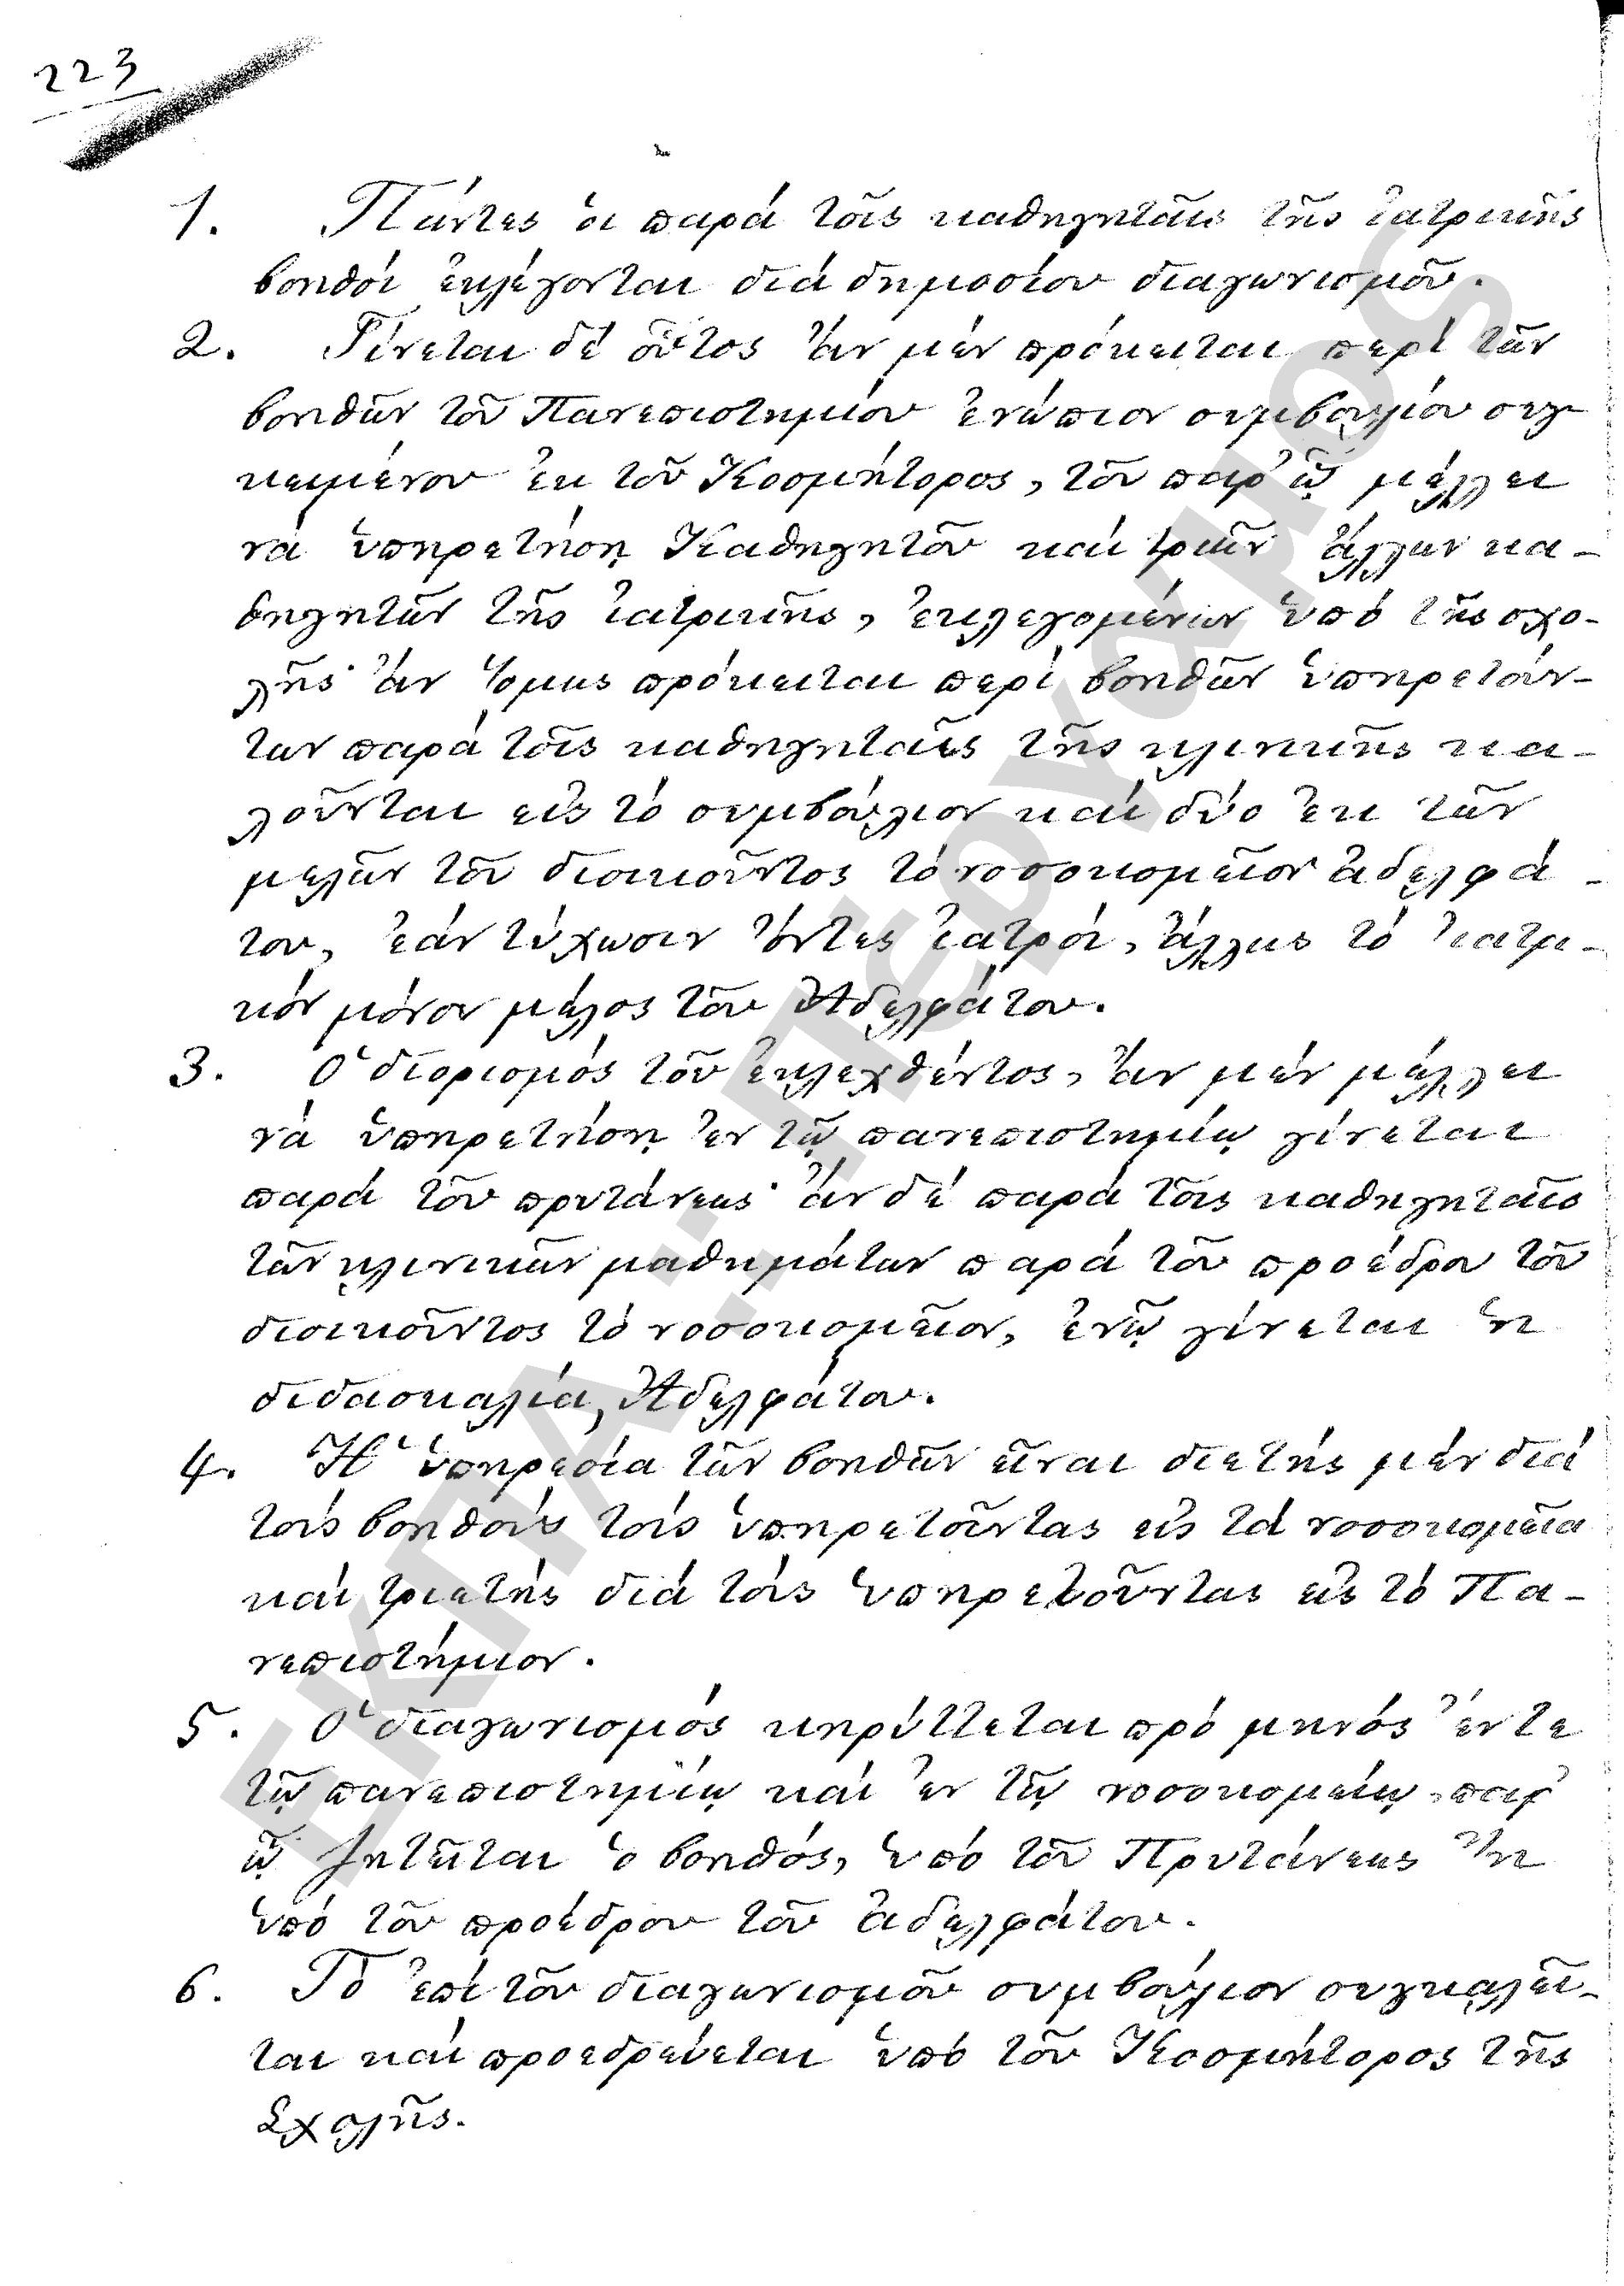 223
1. Πάντες οἱ παρά τοῖς καθηγηταῖς τῆς ἰατρικῆς
βοηθοί ἐκλέγονται διά δημοσίου διαγωνισμοῦ.
2. Γίνεται δέ οὗτος ἄν μέν πρόκειται περί τῶν
βοηθῶν τοῦ Πανεπιστημίου ἐνώπιον συμβουλίου συγ-
κειμένου ἐκ τοῦ Κοσμήτορος, τοῦ παρ' ᾧ μέλλει
νά ὑπηρετήσῃ Καθηγητοῦ καί τριῶν ἄλλων κα-
θηγητῶν τῆς ἰατρικῆς, ἐκλεγομένων ὑπό τῆς σχο-
λῆς· ἄν ὅμως πρόκειται περί βοηθῶν ὑπηρετούν-
των παρά τοῖς καθηγηταῖς τῆς κλινικῆς κα-
λοῦνται εἰς τό συμβούλιον καί δύο ἐκ τῶν
μελῶν τοῦ διοικοῦντος τό νοσοκομεῖον ἀδελφά-
του, ἐάν τύχωσιν ὄντες ἰατροί, ἄλλως τό ἰατρι-
κόν μόνον μέλος τοῦ Ἀδελφάτου.
3. Ὁ διορισμός τοῦ ἐκλεχθέντος, ἄν μέν μέλλει
νά ὑπηρετήσῃ ἐν τῷ πανεπιστημίῳ γίνεται
παρά τοῦ πρυτάνεως· ἄν δέ παρά τοῖς καθηγηταῖς
τῶν κλινικῶν μαθημάτων παρά τοῦ προέδρου τοῦ
διοικοῦντος τό νοσοκομεῖον, ἐν ᾧ γίνεται ἡ
διδασκαλία, Ἀδελφάτου.
4. Ἡ ὑπηρεσία τῶν βοηθῶν εἶναι διετής μέν διά
τούς βοηθούς τούς ὑπηρετοῦντας εἰς τά νοσοκομεῖα
καί τριετής διά τούς ὑπηρετοῦντας εἰς τό Πα-
νεπιστήμιον.
5. Ὁ διαγωνισμός κηρύττεται πρό μηνός ἔν τε
τῷ πανεπιστημίῳ καί ἐν τῷ νοσοκομείῳ, παρ'
ᾧ ζητεῖται ὁ βοηθός, ὑπό τοῦ Πρυτάνεως ἤ
ὑπό τοῦ προέδρου τοῦ ἀδελφάτου.
6. Τό ἐπί τοῦ διαγωνισμοῦ συμβούλιον συγκαλεῖ-
ται καί προεδρεύεται ὑπό τοῦ Κοσμήτορος τῆς
Σχολῆς.